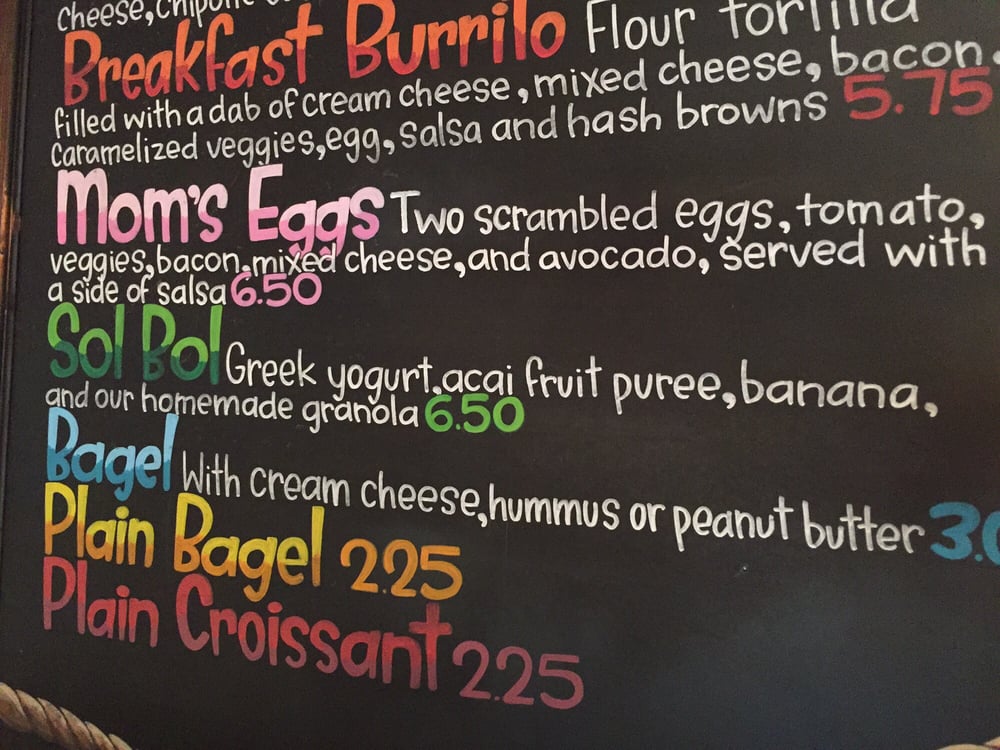 cheese, chipotle
Breakfast Burrito Flour tortilla
filled with a dab of cream cheese, mixed cheese, bacon,
Caramelized veggies, egg, salsa and hash browns 5.75
Mom's Eggs Two scrambled eggs, tomato,
veggies, bacon, mixed cheese, and avocado, served with
a side of salsa 6.50
Sol Bol Greek yogurt, acai fruit puree, banana,
and our homemade granola 6.50
Bagel With cream cheese, hummus or peanut butter 3.0
Plain Bagel 2.25
Plain Croissant 2.25